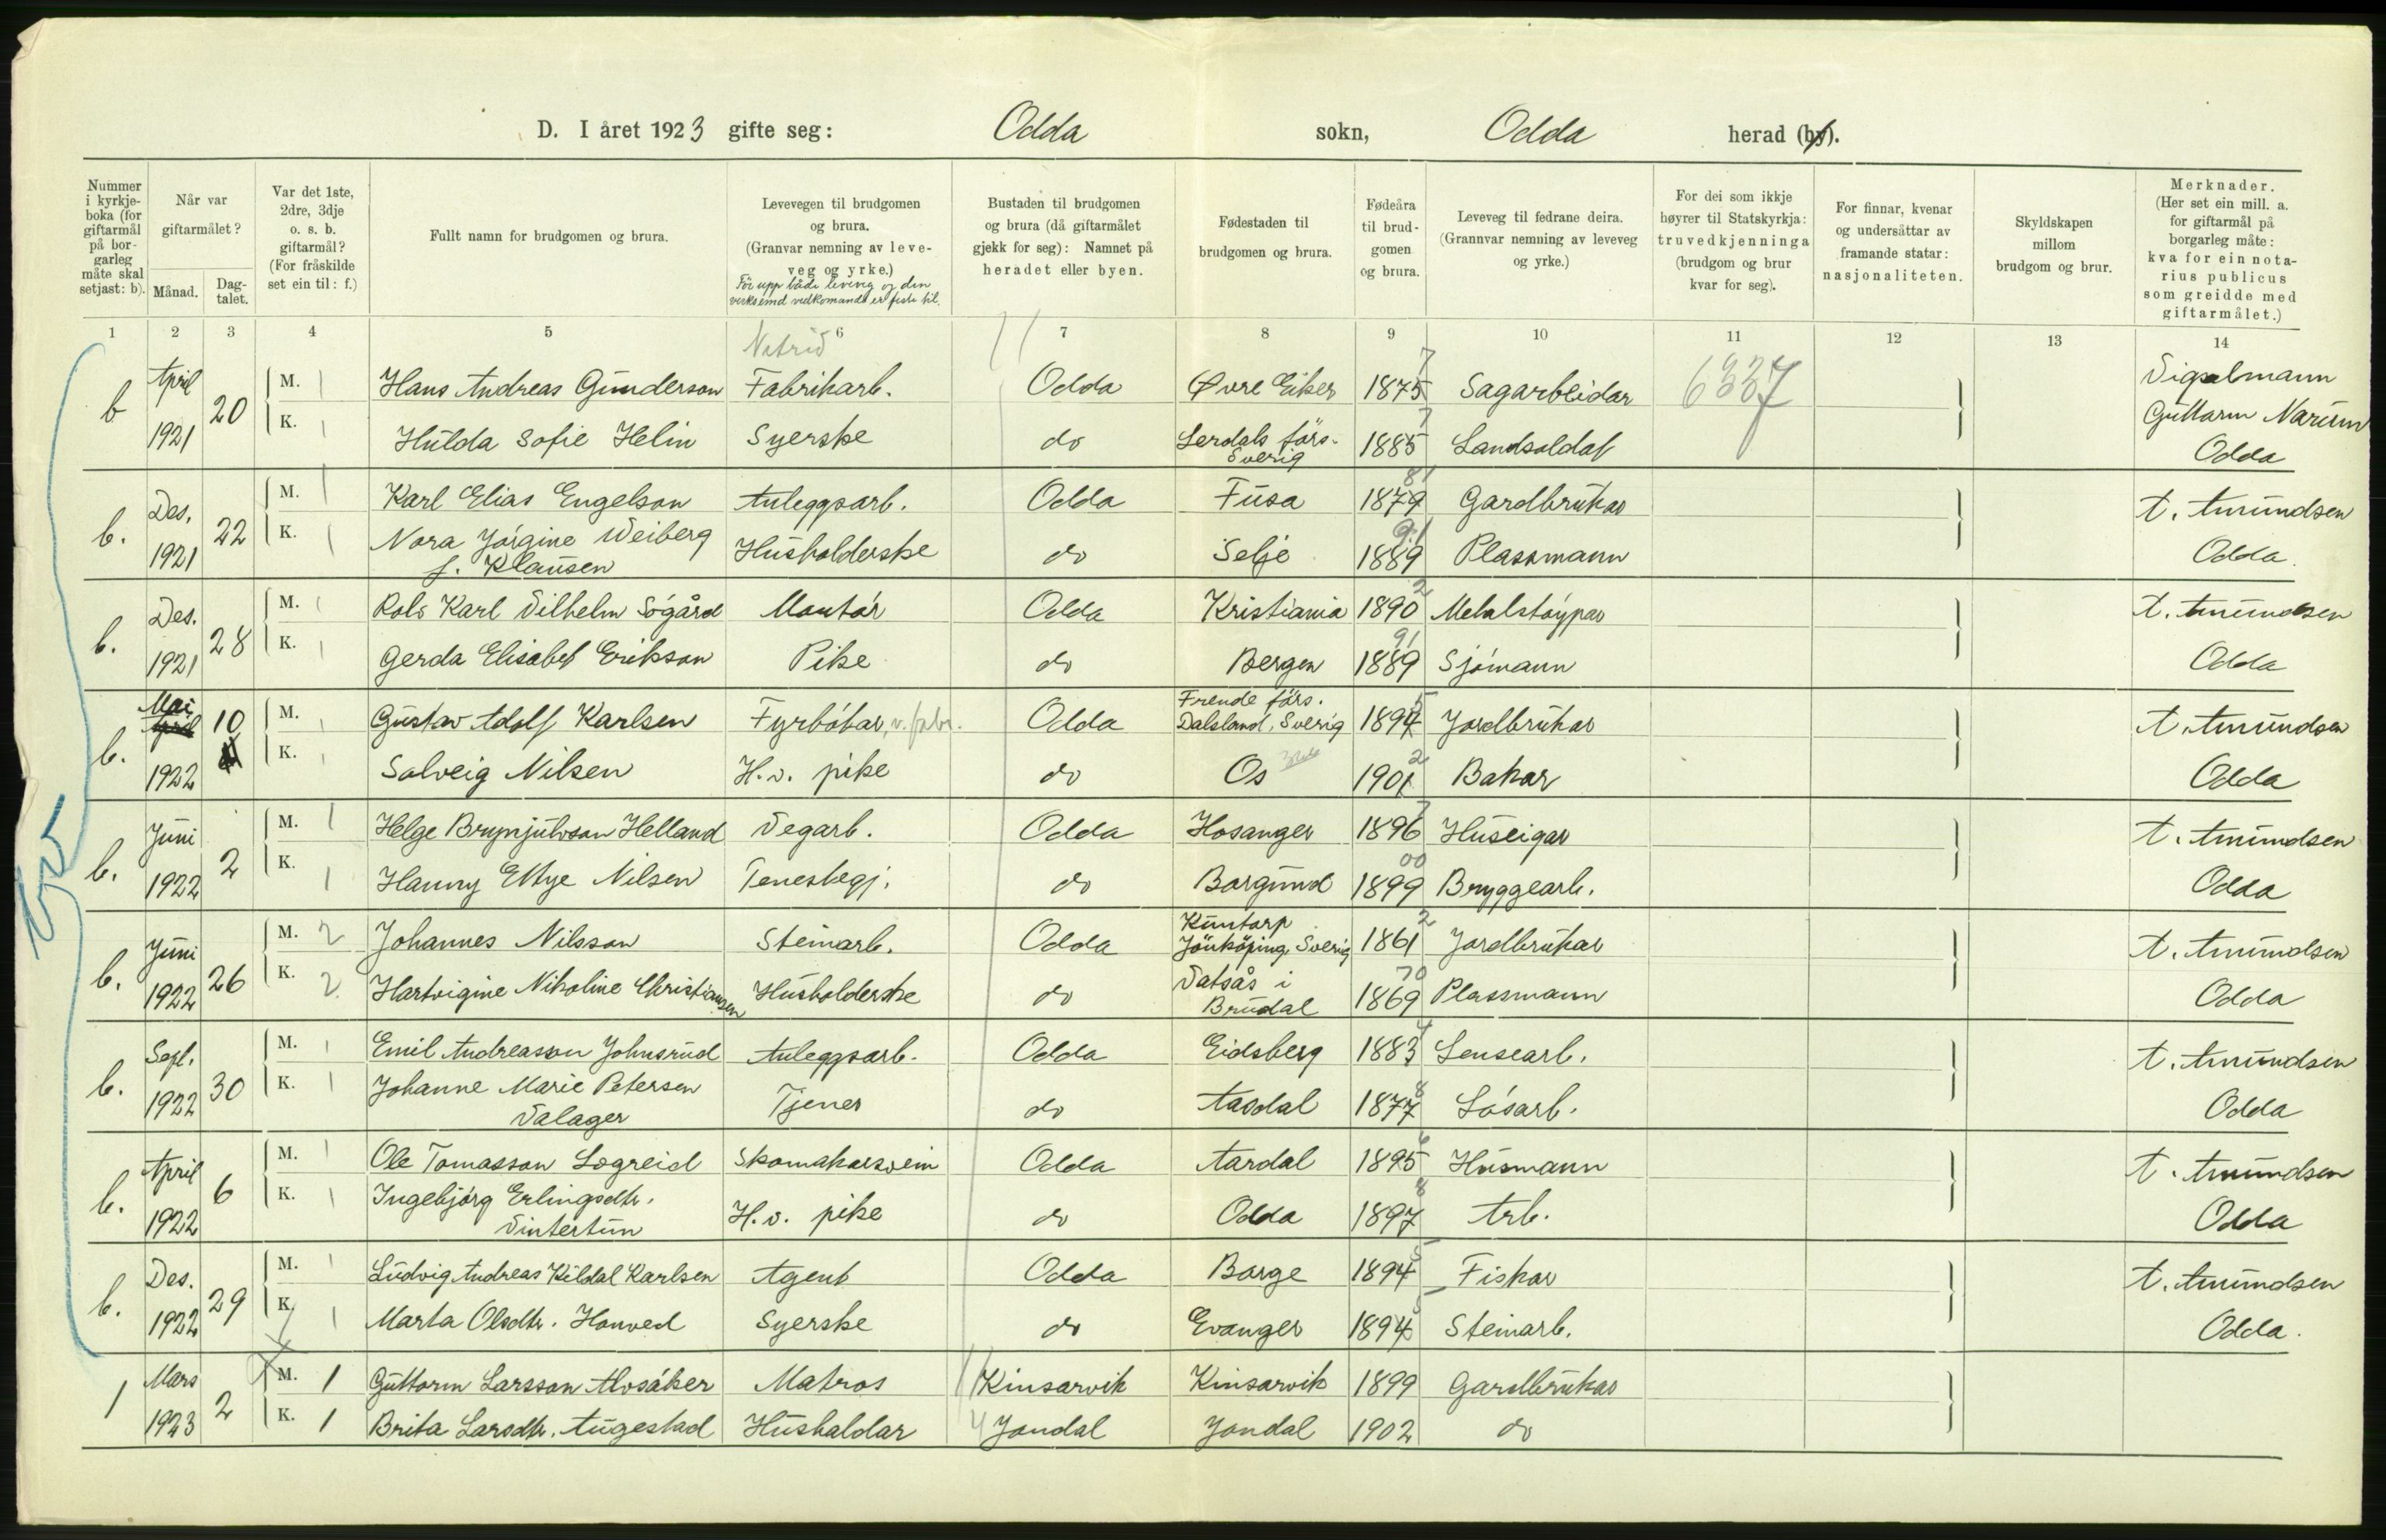 D. I året 1923 gifte seg: Odda sokn, Odda herad (by).
Nummer i kyrkjeboka (for giftarmål på borgarleg måte skal setjast: b).
Når var giftarmålet?
Månad.
Dagtalet.
Var det 1ste, 2dre, 3dje o. s. b. giftarmål? (For fråskilde set ein til: f.)
Fullt namn for brudgomen og brura.
Levevegen til brudgomen og brura. (Granvar nemning av leveveg og yrke.)
För upp både leveveg og den verksemd vedkomande er feste til.
Bustaden til brudgomen og brura (då giftarmålet gjekk for seg): Namnet på heradet eller byen.
Fødestaden til brudgomen og brura.
Fødeåra til brudgomen og brura.
Leveveg til fedrane deira. (Grannvar nemning av leveveg og yrke.)
For dei som ikkje høyrer til Statskyrkja: truvedkjenninga (brudgom og brur kvar for seg).
For finnar, kvenar og undersåttar av framande statar: nasjonaliteten.
Skyldskapen millom brudgom og brur.
Merknader. (Her set ein mill. a. for giftarmål på borgarleg måte: kva for ein notarius publicus som greidde med giftarmålet.)
1 2 3 4 5 6 7 8 9 10 11 12 13 14
b April 20 M. 1 Hans Andreas Gunderson Fabrikarb. Odda Øvre Eiker 1875 7 Sagarbeidar 6337
1921 K. 1 Hulda Sofie Helin Syerske do Lerdals förs. Sverig 1885 7 Landsoldat Guttorm Odda
b. Des. 22 M. 1 Karl Elias Engelson Anleggsarb. Odda Fusa 1879 81 Gardbrukar A. Amundsen
1921 K. 1 Nora Jórgine Weiberg f. Klausen Husholderske do Selje 1889 91 Plassmann Odda
b. Des. 28 M. 1 Rolv Karl Vilhelm Sógård Montór Odda Kristiania 1890 2 Metalstóypar A. Amundsen
1921 K. 1 Gerda Elisabet Erikson Pike do Bergen 1889 91 Sjómann Odda
b. Mai 10 M. 1 Gustav Adolf Karlsen Fyrbótar, v. fabr. Odda Frende förs. Dalsland, Sverig 1894 5 Jordbrukar A. Amundsen
1922 K. 1 Solveig Nilsen H.v. pike do Os 1901 2 Bakar Odda
b. Juni 2 M. 1 Helge Brynjulvson Helland Vegarb. Odda Hosanger 1896 7 Huseigar A. Amundsen
1922 K. 1 Hanny Ettye Nilsen Tenestegj. do Borgund 1899 00 Bryggearb. Odda
b. Juni 26 M. 2 Johannes Nilsson Steinarb. Odda Kuntorp Jönköping, Sverig 1861 2 Jordbrukar A. Amundsen
1922 K. 2 Hartvigine Nikoline Christiansen Husholderske do Vatsås i Brudal 1869 70 Plassmann Odda
b. Sept. 30 M. 1 Emil Andreasson Johnsrud Anleggsarb. Odda Eidsberg 1883 4 Lensearb. A. Amundsen
1922 K. 1 Johanne Marie Petersen Valager Tjener do Aasdal 1877 8 Lósarb. Odda
b. April 6 M. 1 Ole Tomasson Logreid Skomakarsvein Odda Aardal 1895 6 Husmann A. Amundsen
1922 K. 1 Ingebjórg Erlingsdtr. Vintertun H.v. pike do Odda 1897 8 Arb. Odda
b. Des. 29 M. 1 Ludvig Andreas Kildal Karlsen Agent Odda Borge 1894 5 Fiskar A. Amundsen
1922 K. 1 Marta Olsdtr. Honved Syerske do Evanger 1894 5 Steinarb. Odda.
1 Mars 2 M. 1 Guttorm Larsson Alvsåker Matros Kinsarvik Kinsarvik 1899 Gardbrukar
1923 K. 1 Brita Larsdtr. Augestad Hushaldar Jondal Jondal 1902 do